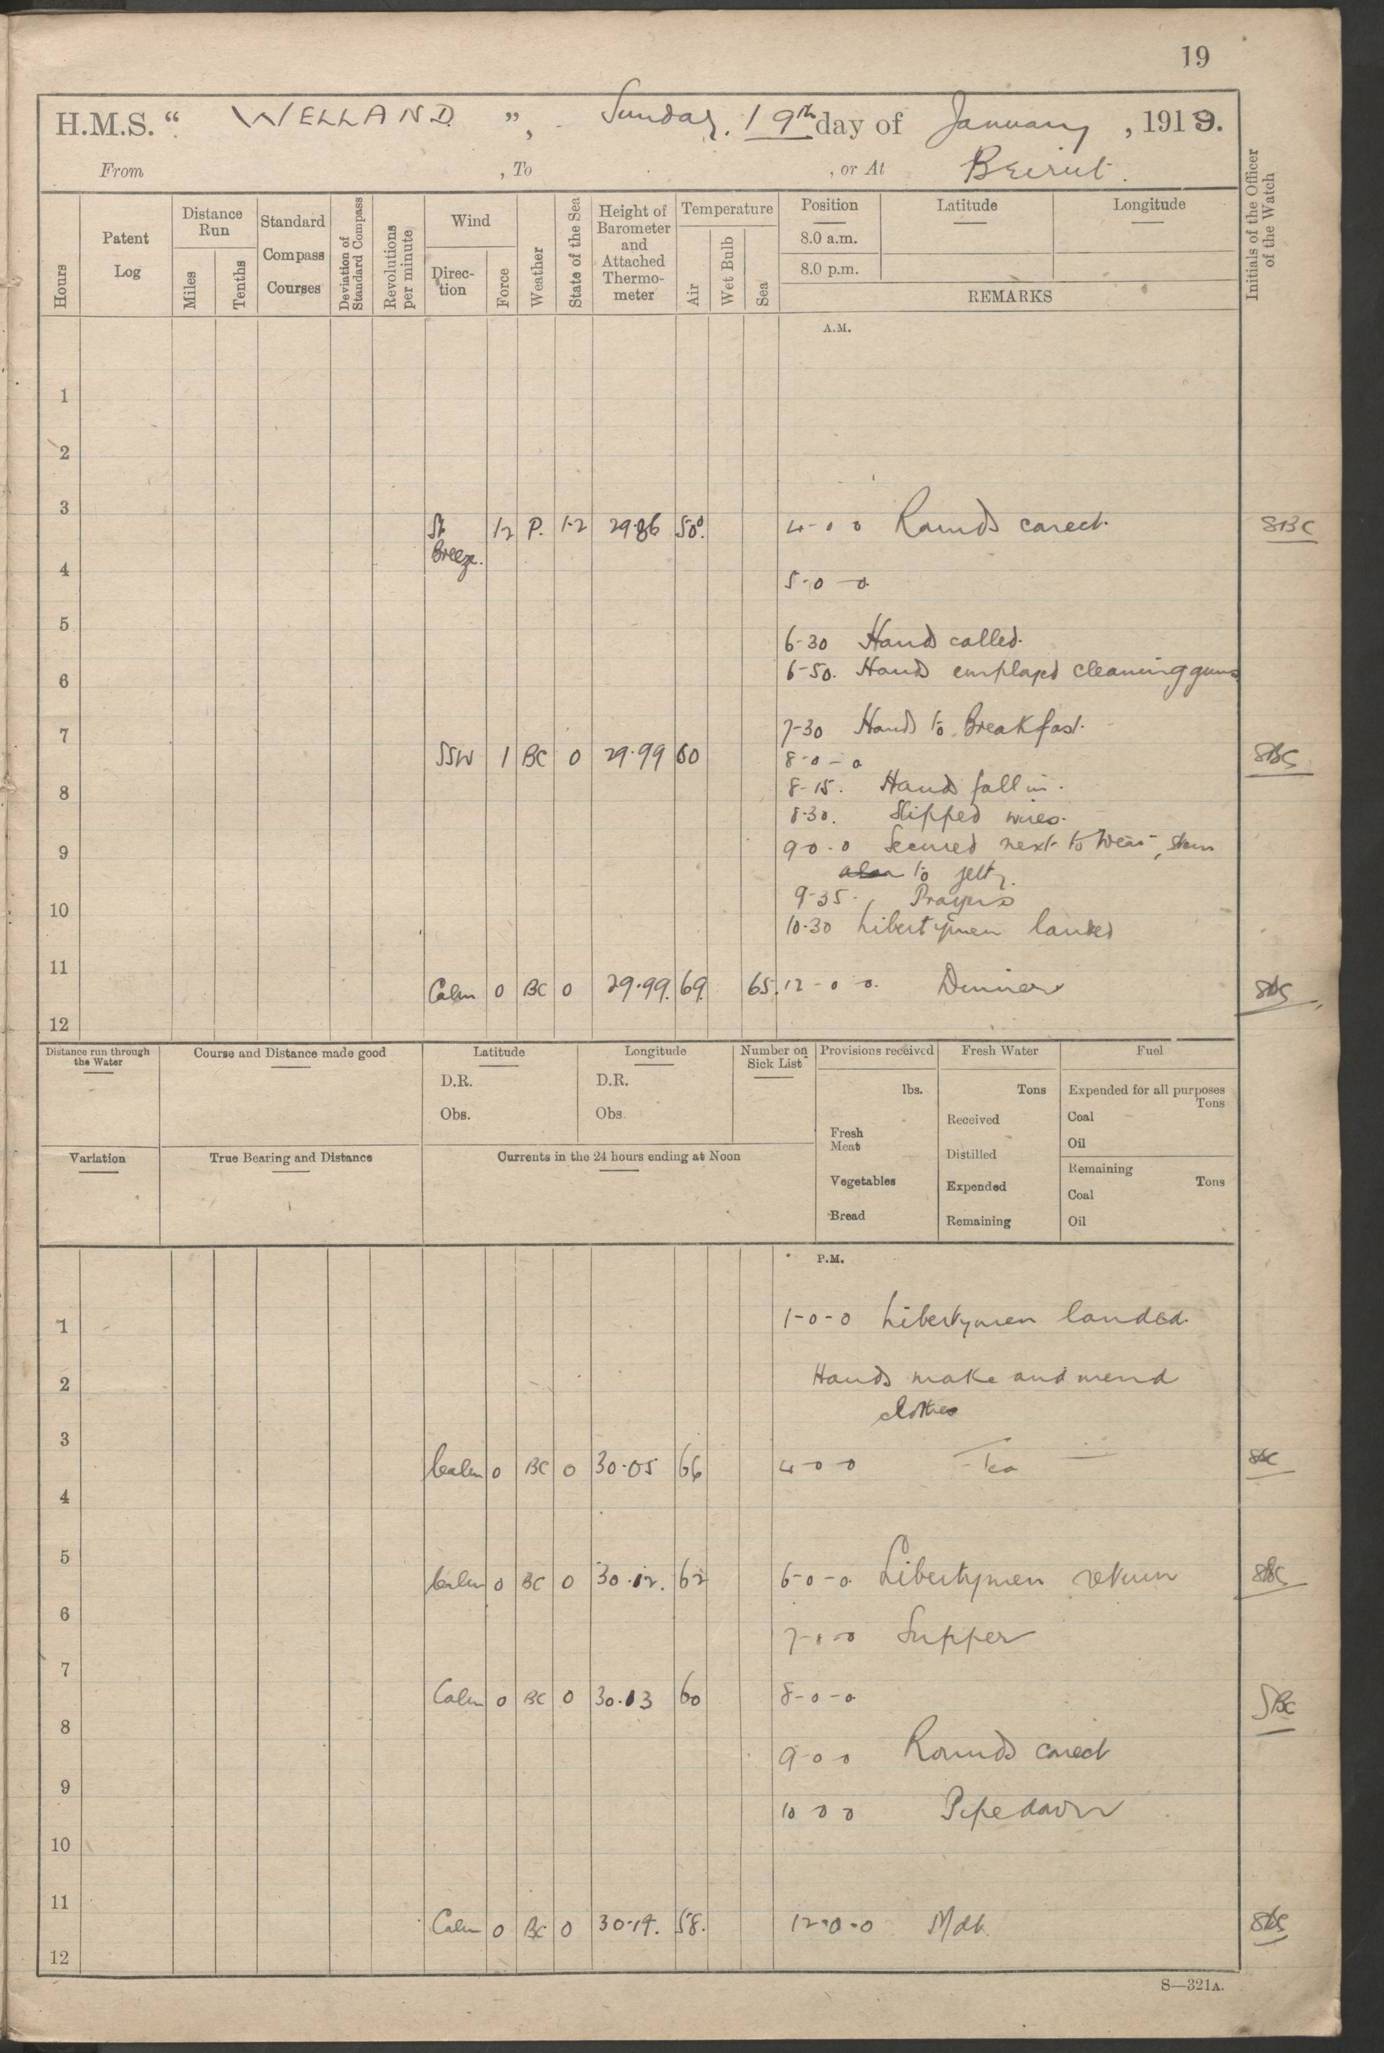 19
H.M.S. " WELLAND ", Sunday, 19th day of January, 1919.
From , To , or At Beirut.
Hours
Patent Log
Distance Run
Miles
Tenths
Standard Compass Courses
Deviation of Standard Compass
Revolutions per minute
Wind
Direction
Force
Weather
State of the Sea
Height of Barometer and Attached Thermometer
Temperature
Air
Wet Bulb
Sea
Position
8.0 a.m.
8.0 p.m.
Latitude
Longitude
REMARKS
Initials of the Officer of the Watch
A.M.
1
2
3
Breeze. 1-2 P. 1-2 29.86 50°. 4-0 0 Rounds corect. SBC
4
5-0-0
5
6-30 Hands called.
6-50. Hands employed cleaning guns
6
7-30 Hands to Breakfast.
7
SSW 1 BC 0 29.99 60 8-0-0 SBC
8-15. Hands fall in.
8
8-30. Slipped wires.
9-0-0 Secured next to Wear, stern
9
to jetty.
9-35. Prayers
10
10-30 Libertymen landed
11
Calm 0 BC 0 29.99. 69. 65. 12-0-0. Dinner SBC
12
Distance run through the Water
Course and Distance made good
Latitude
D.R.
Obs.
Longitude
D.R.
Obs.
Number on Sick List
Provisions received
lbs.
Fresh Meat
Vegetables
Bread
Fresh Water
Tons
Received
Distilled
Expended
Remaining
Fuel
Expended for all purposes
Tons
Coal
Oil
Remaining
Tons
Coal
Oil
Variation
True Bearing and Distance
Currents in the 24 hours ending at Noon
P.M.
1 1-0-0 Libertymen landed.
2 Hands make and mend
clothes
3
Calm 0 BC 0 30.05 66 4-0-0 Tea SBC
4
5
Calm 0 BC 0 30.12. 62 6-0-0. Libertymen return SBC
6
7-0-0 Supper
7
Calm 0 BC 0 30.13 60 8-0-0 SBC
8
9-0 0 Rounds corect
9
10 0 0 Pipe down
10
11
Calm 0 BC 0 30.14. 58. 12-0-0 Mdt. SBC
12
S—321A.